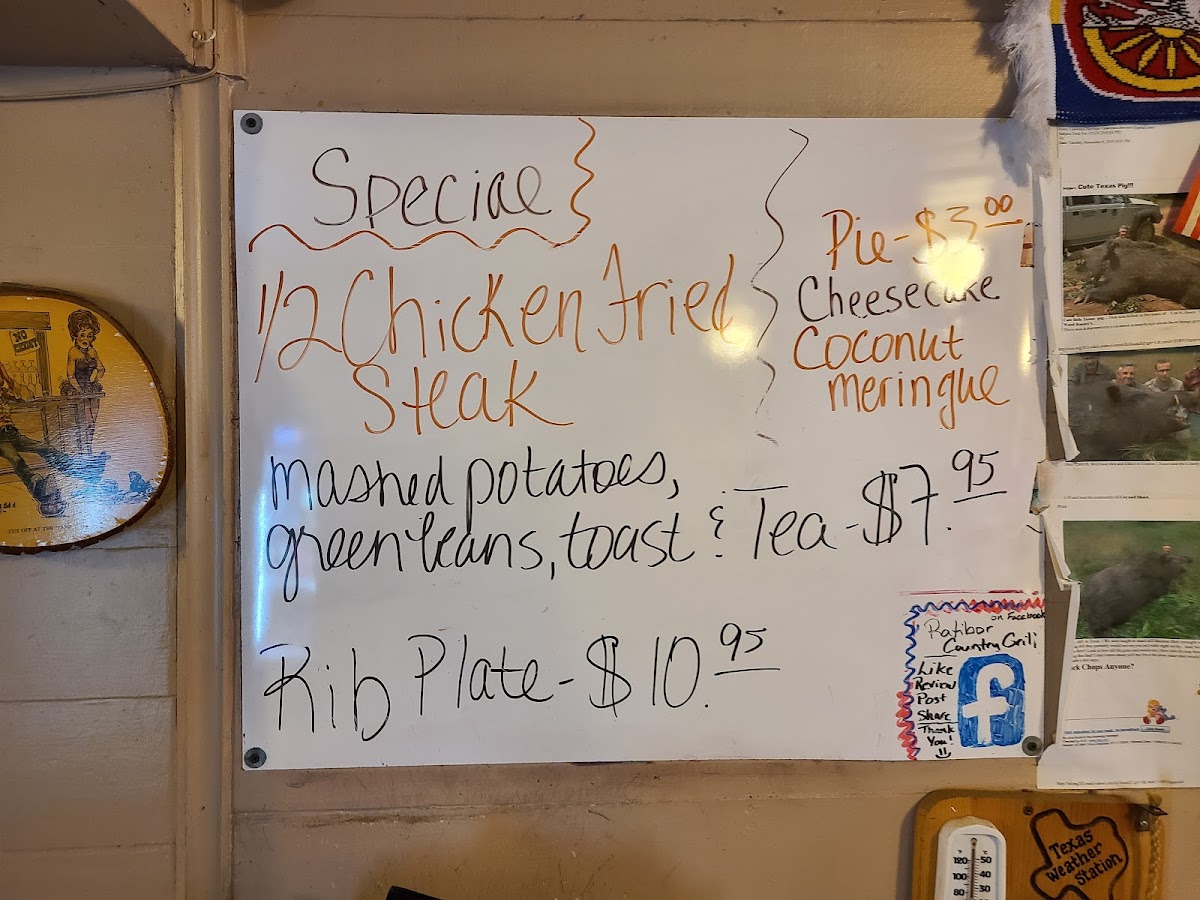 Special
1/2 Chicken Fried
Steak
mashed potatoes,
green beans, toast & Tea - $7.95
Rib Plate - $10.95
Pie - $3.00
Cheesecake
Coconut
meringue
on Facebook
Ratibor
Country Grill
Like
Review
Post
Share
Thank
You!
f
Cute Texas Pig!!!
Chops Anyone?
NO
CUT OFF AT THE
Texas
Weather
Station
°F °C
120 50
100 40
80 30